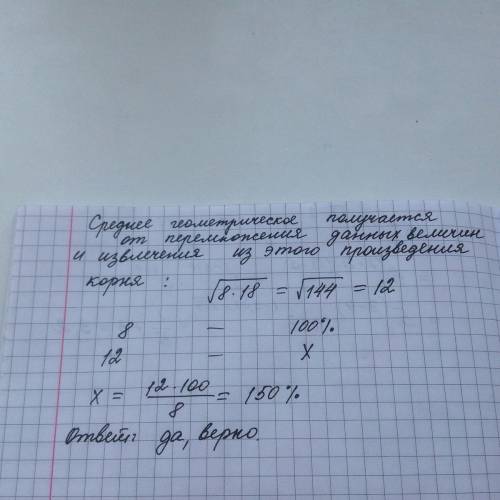 Среднее геометрическое получается
от перемножения данных величин
и извлечения из этого произведения
корня : √8·18 = √144 = 12
8 — 100%
12 — x
x = 12·100/8 = 150%
Ответ: да, верно.